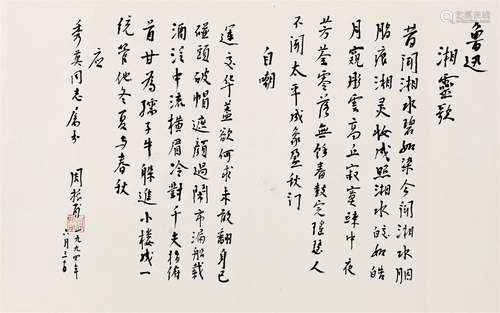 鲁迅
湘靈歌
昔聞湘水碧如染今聞湘水胭
脂痕湘灵妝成照湘水皎如皓
月窺彤雲高丘寂寞竦中夜
芳荃零落無餘春鼓完瑤瑟人
不聞太平成象盈秋门
自嘲
運交华盖欲何求未敢翻身已
碰頭破帽遮顏過鬧市漏船載
酒泛中流橫眉冷對千夫指俯
首甘為孺子牛躲進小樓成一
统管他冬夏与春秋
应
秀英同志属书
周振甫
一九九四年
六月